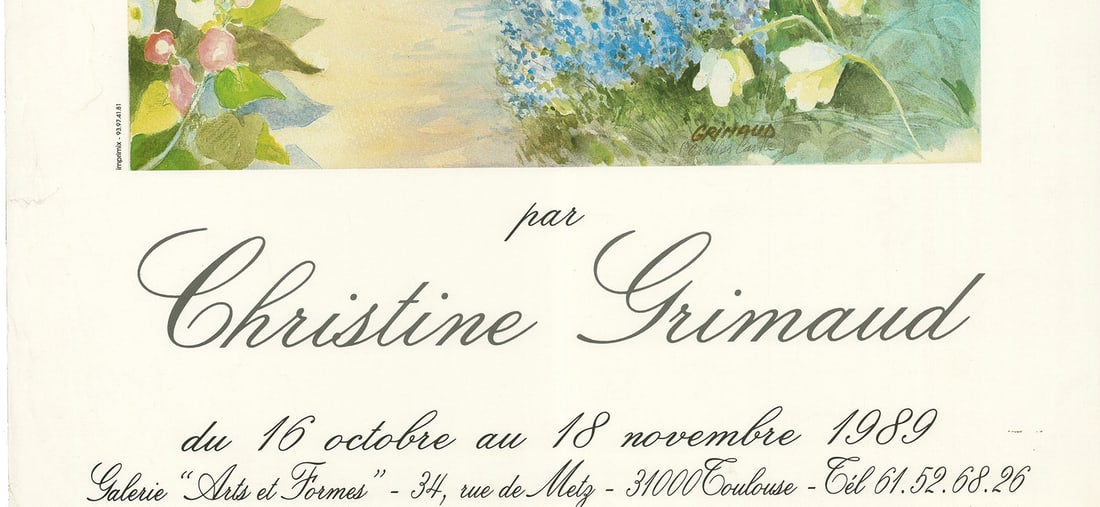 imprimix - 93.97.41.81
GRIMAUD
par
Christine Grimaud
du 16 octobre au 18 novembre 1989
Galerie "Arts et Formes" - 34, rue de Metz - 31000 Toulouse - Tél 61.52.68.26